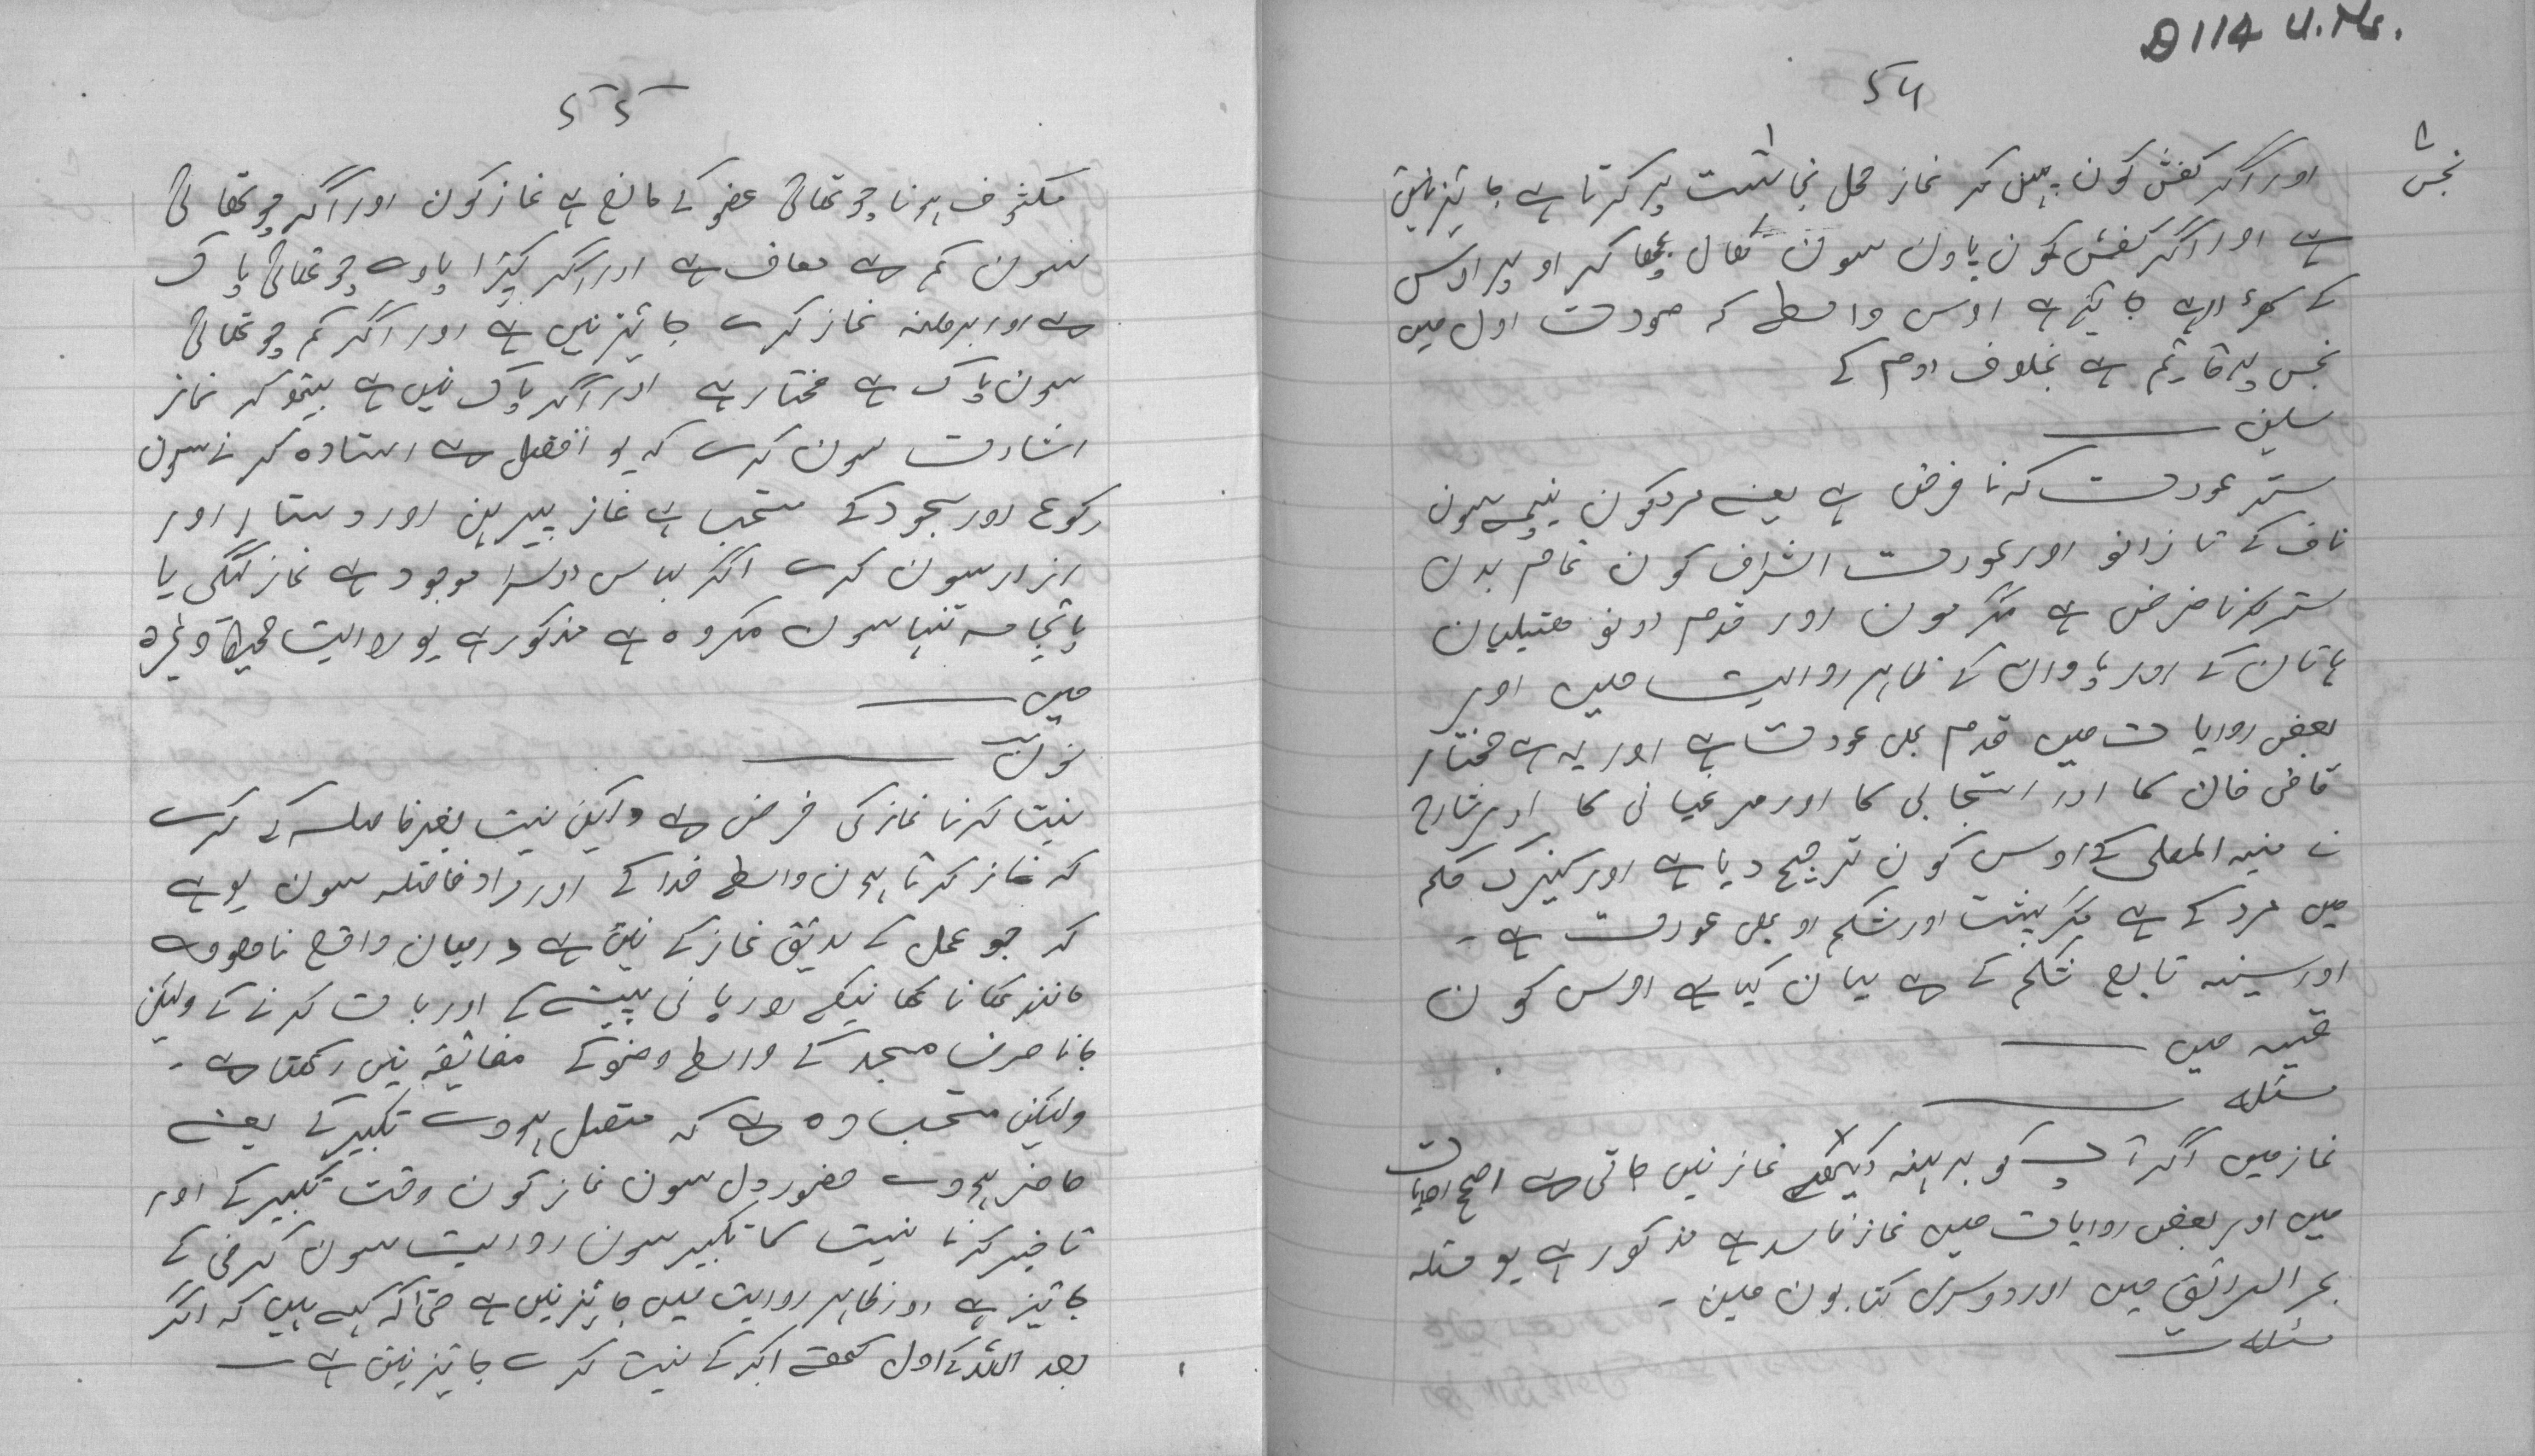 D 114 U.Ms.
۵۴
نجس
اور اگر کفش کون پہن کر نماز محل نجاست پر کرتا ہے جائز نہیں
ہے اور اگر کفش کون پاون سون نکال بچھا کر اوپر اوس
کے کھڑا رہے جائز ہے اوس واسطے کہ صورت اول میں
نجس پر قائم ہے بخلاف دوم کے
ستر عورت کرنا فرض ہے یعنے مرد کون نیچے سون
ناف کے تا زانو اور عورت اشراف کون تمام بدن
ستر کرنا فرض ہے مگر مون اور قدم دونو ہتیلیان
ہاتان کے اور پاوان کے ظاہر روایت میں اور
بعض روایات میں قدم بھی عورت ہے اور یہ ہے مختار
قاضی خان کا اور استجابی کا اور مرغیانی کا اور شارح
نے منیہ المصلی کے اوس کون ترجیح دیا ہے اور کنیزک حکم
میں مرد کے ہے مگر پیشت اور شکم او بھی عورت ہے ۔
اور سینہ تابع شکم کے ہے بیان کیا ہے اوس کون
قنیہ میں
مسئلہ
نماز میں اگر آپ کو برہنہ دیکھے نماز نیں جاتی ہے اصح روایات
میں اور بعض روایات میں نماز فاسد ہے مذکور ہے یو مسئلہ
بحر الرائق میں اور دوسری کتابون میں ۔
مسئلہ
۵۵
مکشوف ہونا چوتھائی عضو کے مانع ہے نماز کون اور اگر چوتھائی
سون کم ہے معاف ہے اور اگر کپڑا پاوے چوتھائی پاک
ہے اور برہنہ نماز کرے جائز نیں ہے اور اگر کم چوتھائی
سون پاک ہے مختار ہے اور اگر پاک نیں ہے بیتھ کر نماز
اشارت سون کرے کہ یو افضل ہے استادہ کرنے سون
رکوع اور سجود کے مستحب ہے نماز پیرہن اور دستار اور
ازار سون کرے اگر لباس دوسرا موجود ہے نماز لنگی یا
پائجامہ تنہا سون مکروہ ہے مذکور ہے یو روایت محیط وغیرہ
میں
نیت کرنا نماز کی فرض ہے ولیکن نیت بغیر فاصلہ کے کرے
کہ نماز کرتا ہون واسطے خدا کے اور مراد فاصلہ سون یو ہے
کہ جو عمل کے لائق نماز کے نیں ہے درمیان واقع نا ہووے
مانند کھانا کھانیکے اور پانی پینے کے اور بات کرنے کے ولیکن
جانا طرف مسجد کے واسطے وضو کے مضائقہ نیں رکھتا ہے ۔
ولیکن مستحب وہ ہے کہ متصل ہووے تکبیر کے یعنے
حاضر ہووے حضور دل سون نماز کون وقت تکبیر کے اور
تاخیر کرنا نیت کا تکبیر سون روایت سون کرخی کے
جائز ہے اور ظاہر روایت میں جائز نیں ہے حتیٰ کہ کہے ہیں کہ اگر
بعد اللہ کے اول کہتے اکبر کے نیت کرے جائز نیں ہے